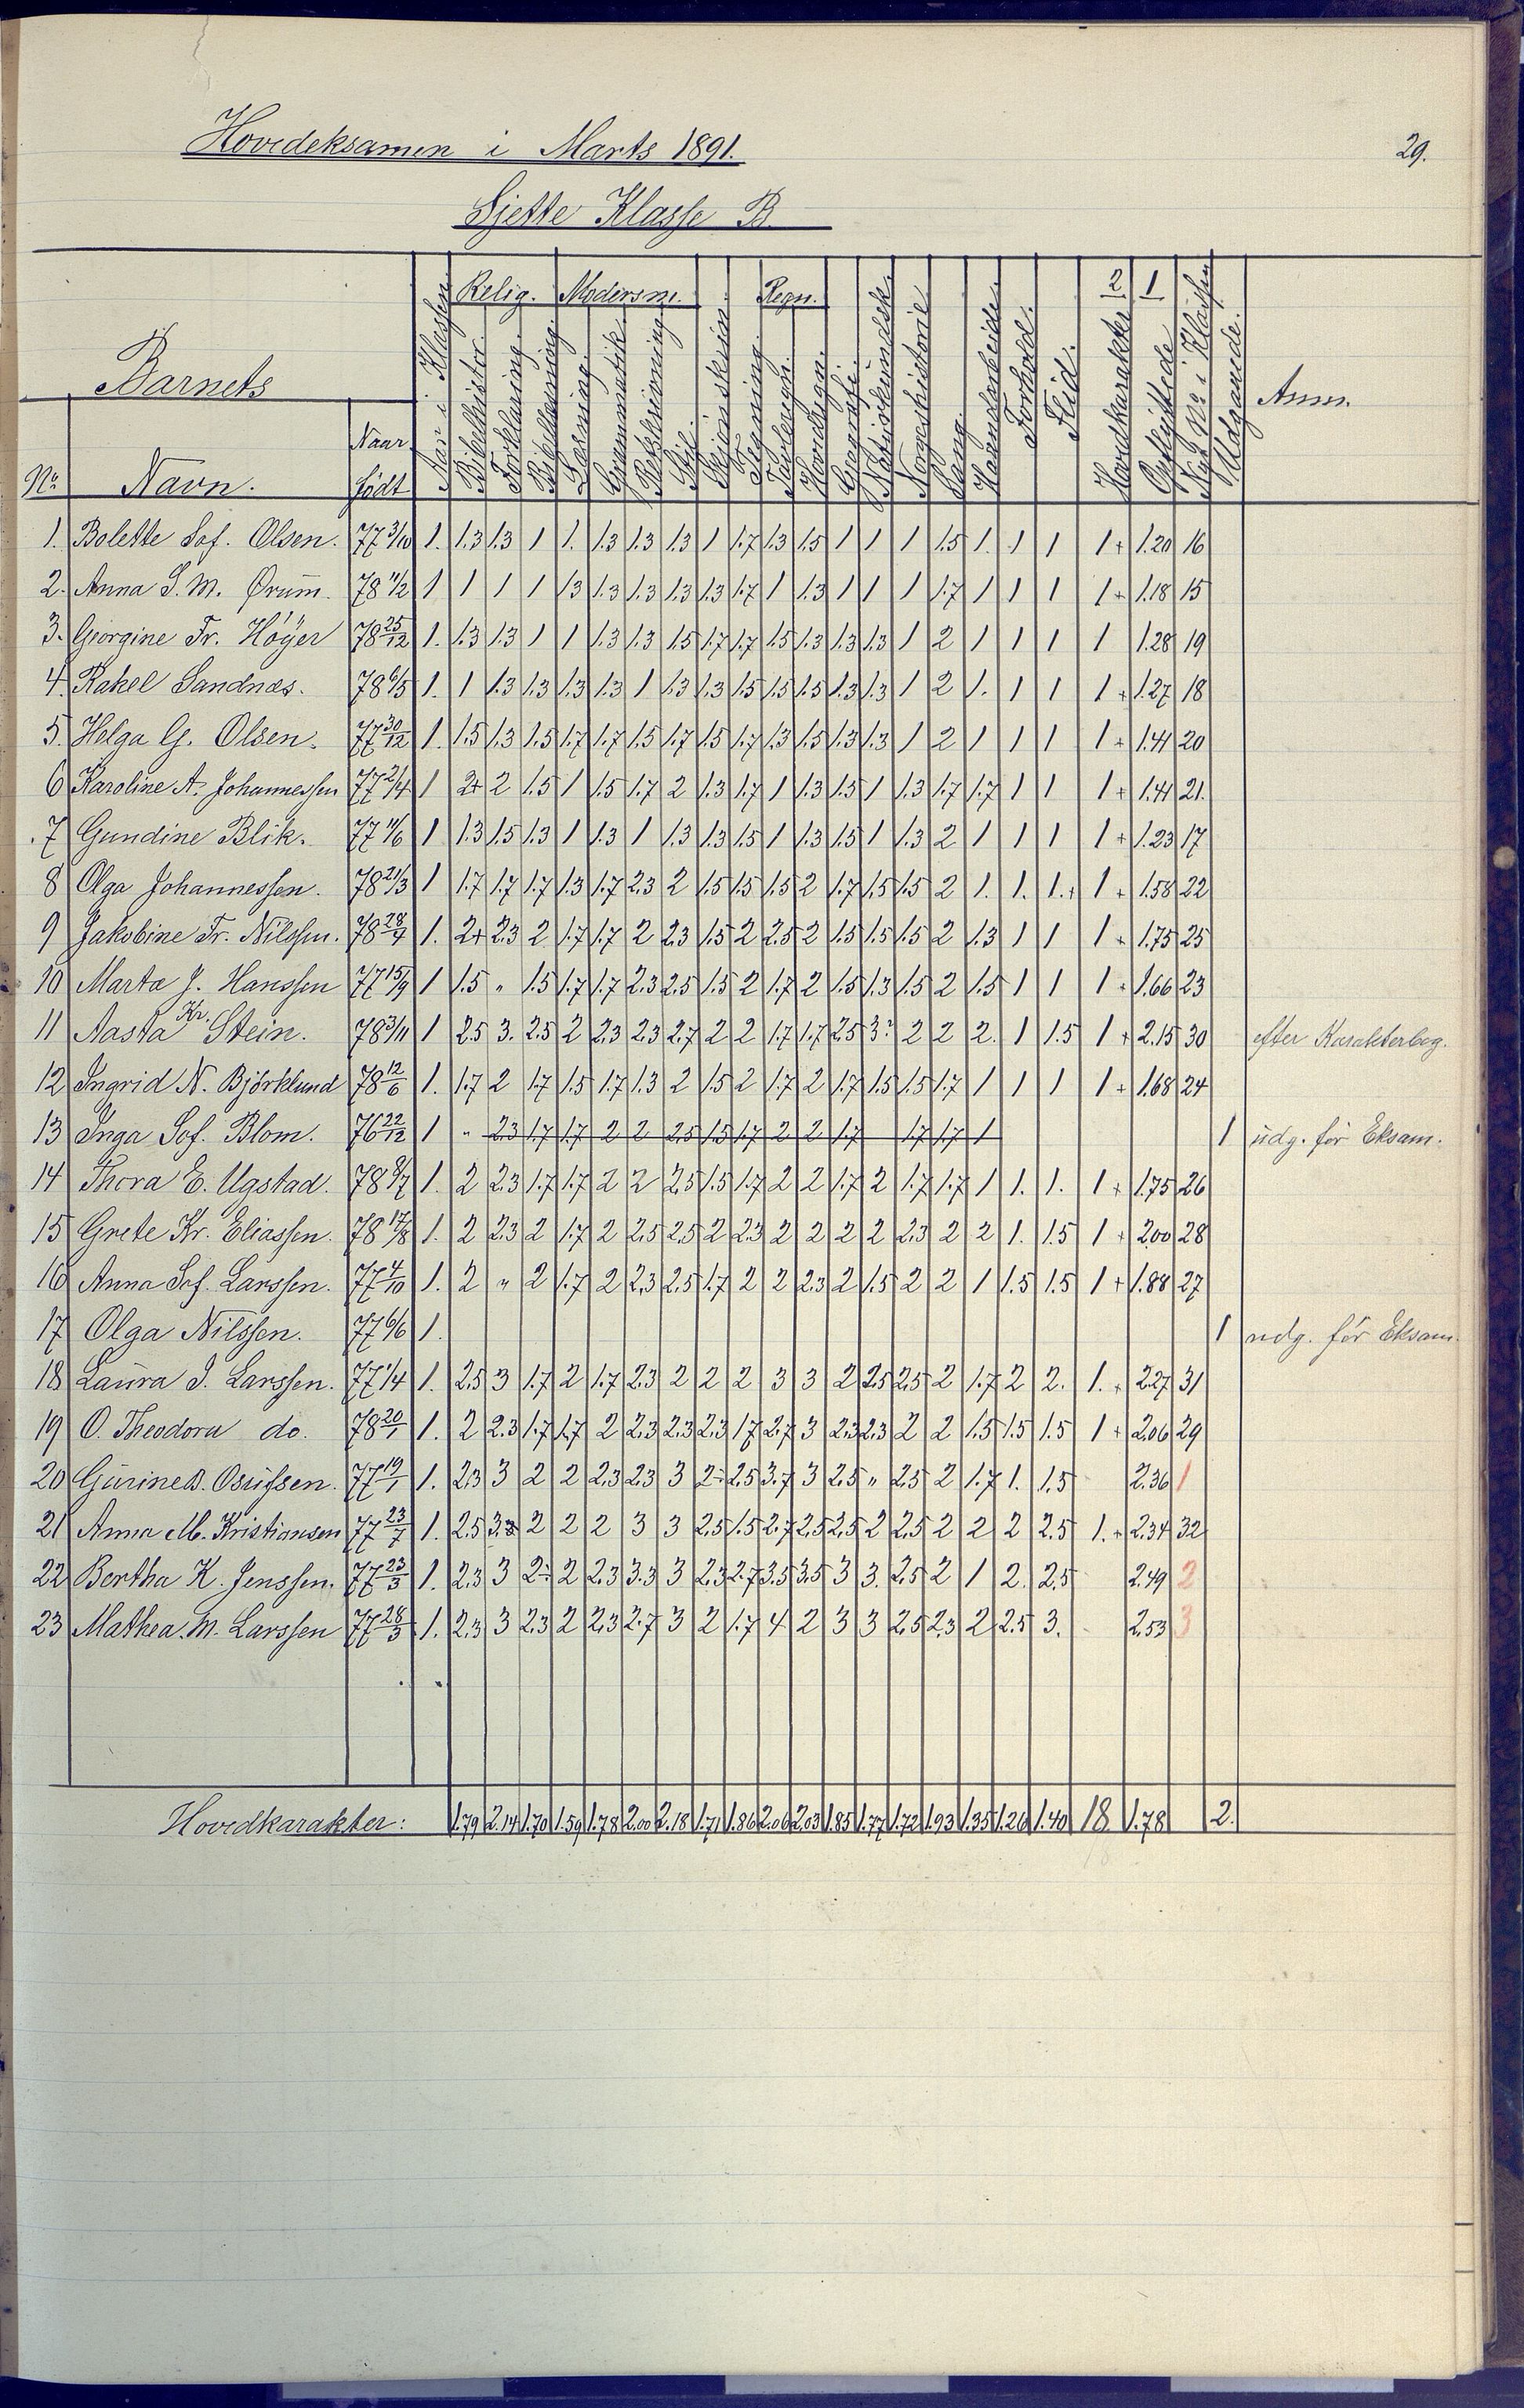 29.
Hovedeksamen i Marts 1891.
Sjette Klasse B.
Barnets
No. Navn. Naar født Aar i Klassen. Relig. Bibelhistor. Forklaring. Bibellæsning. Modersm. Læsning. Grammatik. Retskrivning Stil. Skjønskrivn. Tegning. Regn. Tavleregn. Hovedregn. Geografi. Naturkundsk. Norgeshistorie Sang. Haandarbeide. Forhold. Flid. 2 Hovedkarakter 1 Opflyttede Nyt No. i Klassen Udgaaede. Anm.
1. Bolette Sof. Olsen. 77 3/10 1. 1.3 1.3 1 1. 1.3 1.3 1.3 1 1.7 1.3 1.5 1 1 1 1.5 1. 1 1 1+ 1.20 16
2. Anna S. M. Ørum. 78 11/2 1 1 1 1 1.3 1.3 1.3 1.3 1.3 1.7 1 1.3 1 1 1 1.7 1 1 1 1+ 1.18 15
3. Georgine Fr. Höyer 78 25/12 1. 1.3 1.3 1 1 1.3 1.3 1.5 1.7 1.7 1.5 1.3 1.3 1.3 1 2 1 1 1 1 1.28 19
4. Rakel Sandnæs. 78 6/5 1. 1 1.3 1.3 1.3 1.3 1 1.3 1.3 1.5 1.5 1.5 1.3 1.3 1 2 1. 1 1 1+ 1.27 18
5. Helga G. Olsen. 77 30/12 1. 1.5 1.3 1.5 1.7 1.7 1.5 1.7 1.5 1.7 1.3 1.5 1.3 1.3 1 2 1 1 1 1+ 1.41 20
6 Karoline A. Johannessen 77 2/4 1 2+ 2 1.5 1 1.5 1.7 2 1.3 1.7 1 1.3 1.5 1 1.3 1.7 1.7 1 1 1+ 1.41 21.
7 Gundine Blik. 77 11/6 1 1.3 1.5 1.3 1 1.3 1 1.3 1.3 1.5 1 1.3 1.5 1 1.3 2 1 1 1 1+ 1.23 17
8 Olga Johannessen. 78 21/3 1 1.7 1.7 1.7 1.3 1.7 2.3 2 1.5 1.5 1.5 2 1.7 1.5 1.5 2 1. 1. 1.+ 1+ 1.58 22
9 Jakobine Fr. Nilssen. 78 28/4 1. 2+ 2.3 2 1.7 1.7 2 2.3 1.5 2 2.5 2 1.5 1.5 1.5 2 1.3 1 1 1+ 1.75 25
10 Marta J. Hanssen 77 15/9 1 1.5 " 1.5 1.7 1.7 2.3 2.5 1.5 2 1.7 2 1.5 1.3 1.5 2 1.5 1 1 1+ 1.66 23
11 Aasta Kr. Stein. 78 3/11 1 2.5 3. 2.5 2 2.3 2.3 2.7 2 2 1.7 1.7 2.5 3? 2 2 2. 1 1.5 1+ 2.15 30 efter Karakterbog.
12 Ingrid N. Björklund 78 12/6 1. 1.7 2 1.7 1.5 1.7 1.3 2 1.5 2 1.7 2 1.7 1.5 1.5 1.7 1 1 1 1+ 1.68 24
13 Inga Sof. Blom. 76 22/12 1 " 2.3 1.7 1.7 2 2 2.5 1.5 1.7 2 2 1.7 1.7 1.7 1 1 udg. för Eksam.
14 Thora E. Ugstad. 78 8/7 1. 2 2.3 1.7 1.7 2 2 2.5 1.5 1.7 2 2 1.7 2 1.7 1.7 1 1. 1. 1+ 1.75 26
15 Grete Kr. Eliassen. 78 17/8 1. 2 2.3 2 1.7 2 2.5 2.5 2 2.3 2 2 2 2 2.3 2 2 1. 1.5 1+ 2.00 28
16 Anna Sof. Larssen. 77 4/10 1. 2 " 2 1.7 2 2.3 2.5 1.7 2 2 2.3 2 1.5 2 2 1 1.5 1.5 1+ 1.88 27
17 Olga Nilssen. 77 6/6 1. 1 udg. för Eksam.
18 Laura J. Larssen. 77 1/4 1. 2.5 3 1.7 2 1.7 2.3 2 2 2 3 3 2 2.5 2.5 2 1.7 2 2. 1.+ 2.27 31
19 O. Theodora do. 78 20/1 1. 2 2.3 1.7 1.7 2 2.3 2.3 2.3 1.7 2.7 3 2.3 2.3 2 2 1.5 1.5 1.5 1+ 2.06 29
20 Gurine B. Osufsen. 77 19/1 1. 2.3 3 2 2 2.3 2.3 3 2÷ 2.5 3.7 3 2.5 " 2.5 2 1.7 1. 1.5 2.36 1
21 Anna M. Kristiansen 77 23/7 1. 2.5 3.3 2 2 2 3 3 2.5 1.5 2.7 2.5 2.5 2 2.5 2 2 2 2.5 1.+ 2.34 32
22 Bertha K. Jenssen. 77 23/3 1. 2.3 3 2÷ 2 2.3 3.3 3 2.3 2.7 3.5 3.5 3 3. 2.5 2 1 2. 2.5 2.49 2
23 Mathea. M. Larssen 77 28/3 1. 2.3 3 2.3 2 2.3 2.7 3 2 1.7 4 2 3 3 2.5 2.3 2 2.5 3. 2.53 3
Hovedkarakter: 1.79 2.14 1.70 1.59 1.78 2.00 2.18 1.71 1.86 2.06 2.03 1.85 1.77 1.72 1.93 1.35 1.26 1.40 18 1.78 2.